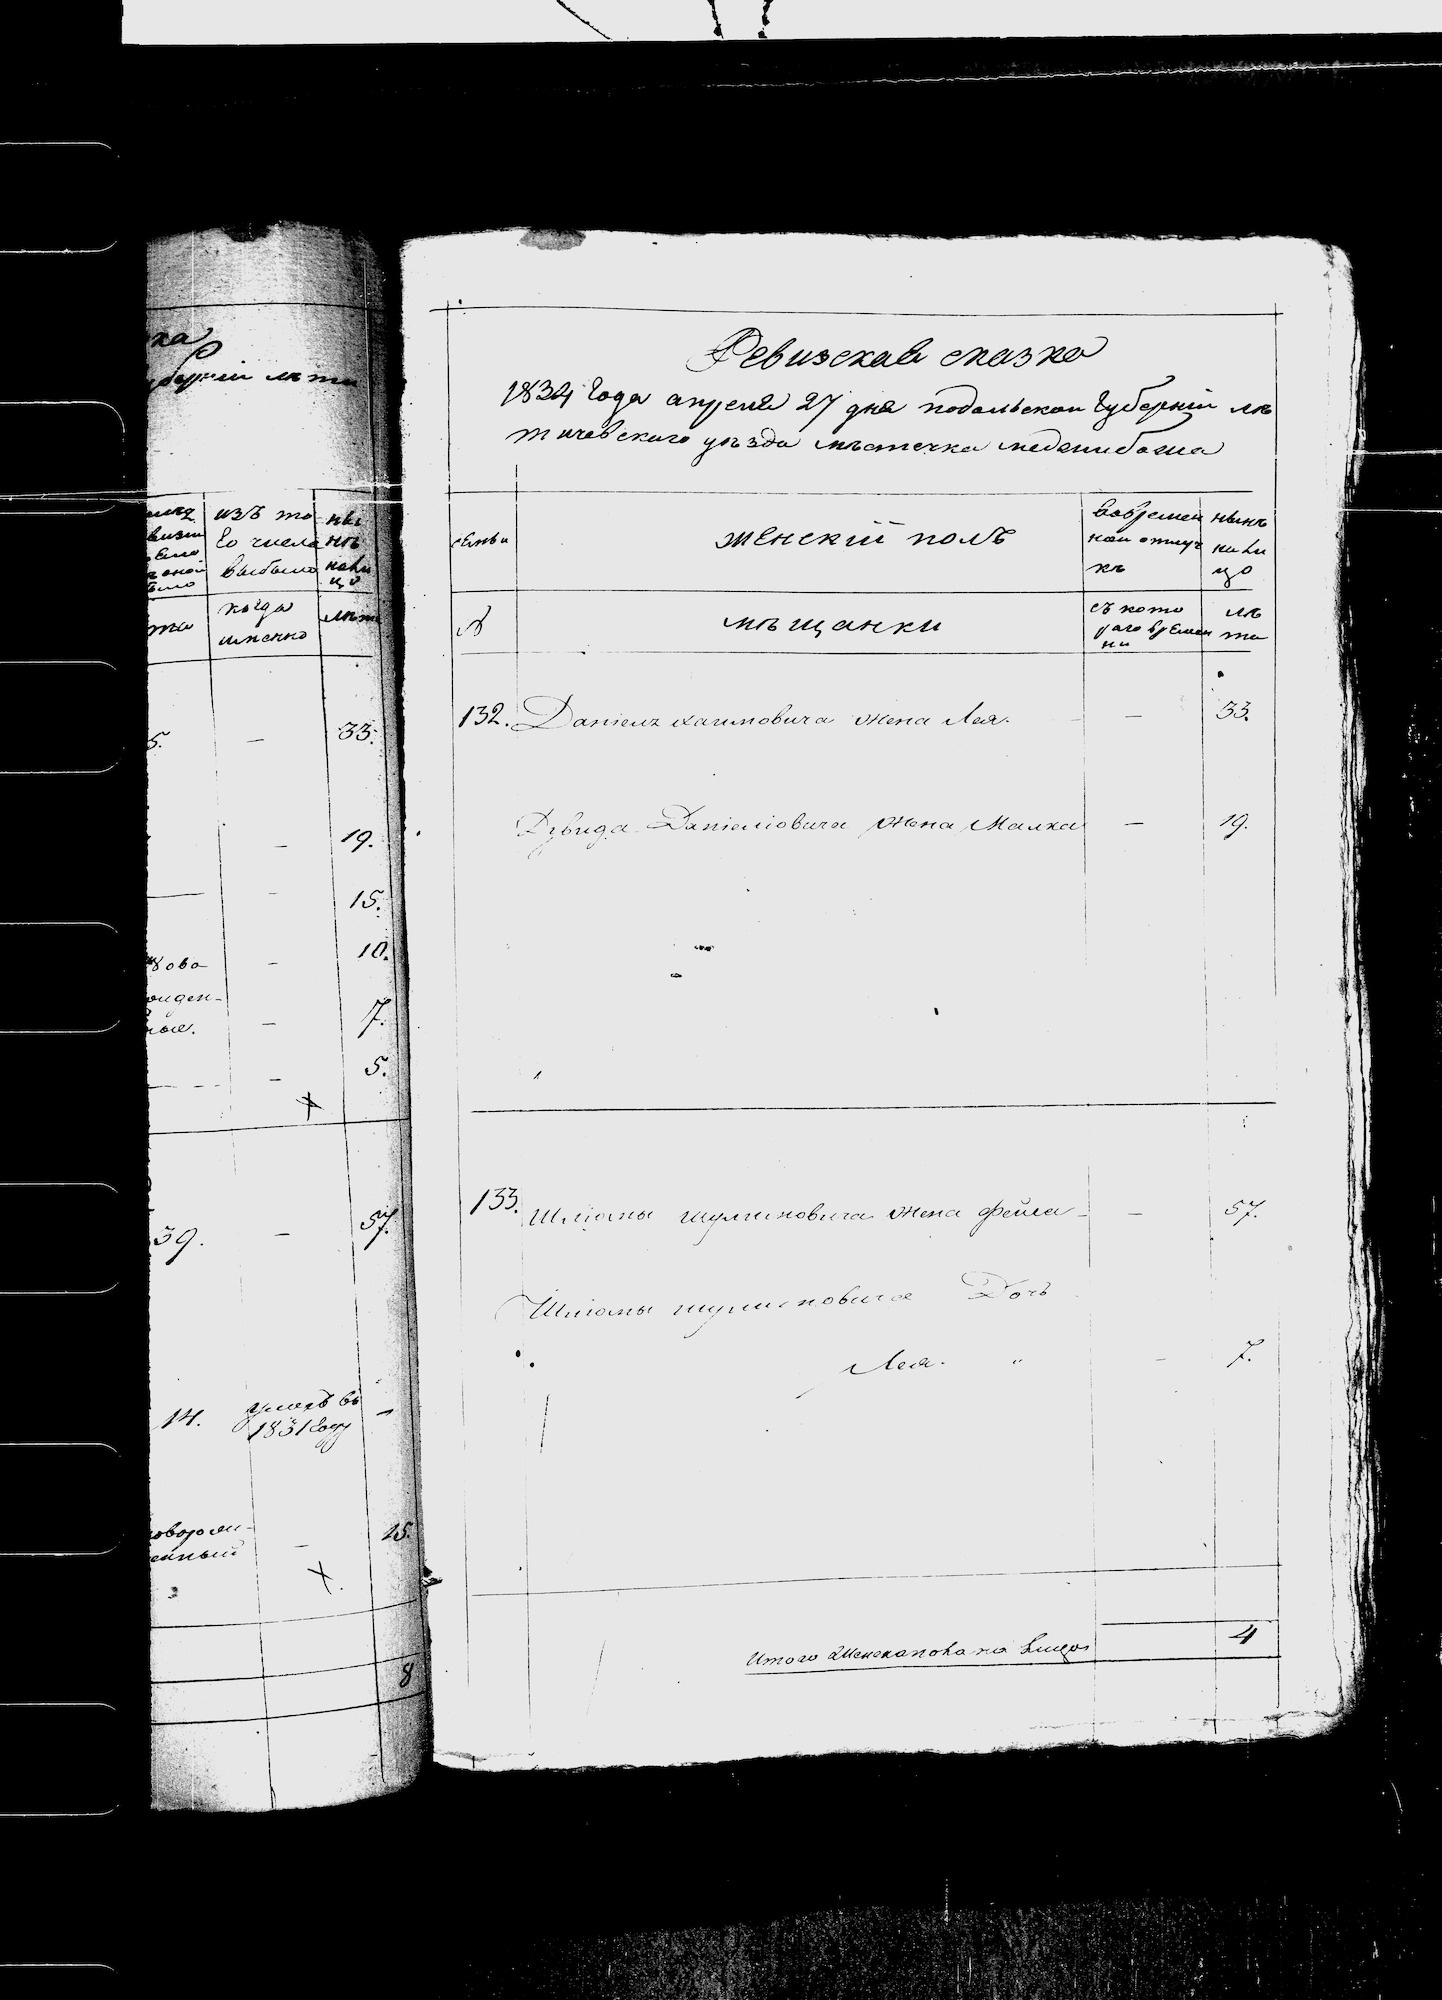 ка
губерніи лѣти
изъ то
го числа
выбыло
ны
нѣ
нали
цо
когда
именно
лѣта
5. — 33.
— 19.
— 15.
— 10.
— 7.
— 5.
39. — 57.
14. умеръ въ
1831 году —
— 15.
8
Ревизская сказка
1834 года апреля 27 дня подольской губерніи лѣ
тичевского уѣзда мѣстечка меджибожа
семьи
женскій полъ
вовремен
ной отлуч
кѣ
нынѣ
нали
цо
№
мѣщанки
съ кото
раго време
ни
лѣ
та
132. Даніелъ хаимовича жена Лея. — 33.
Дувида Даніеліовича жена Малка — 19.
133. Шліомы шулимовича жена фейга — — 57.
Шліомы шулимовича Дочь
Лея. " — 7.
Итого женска пола на лицо 4